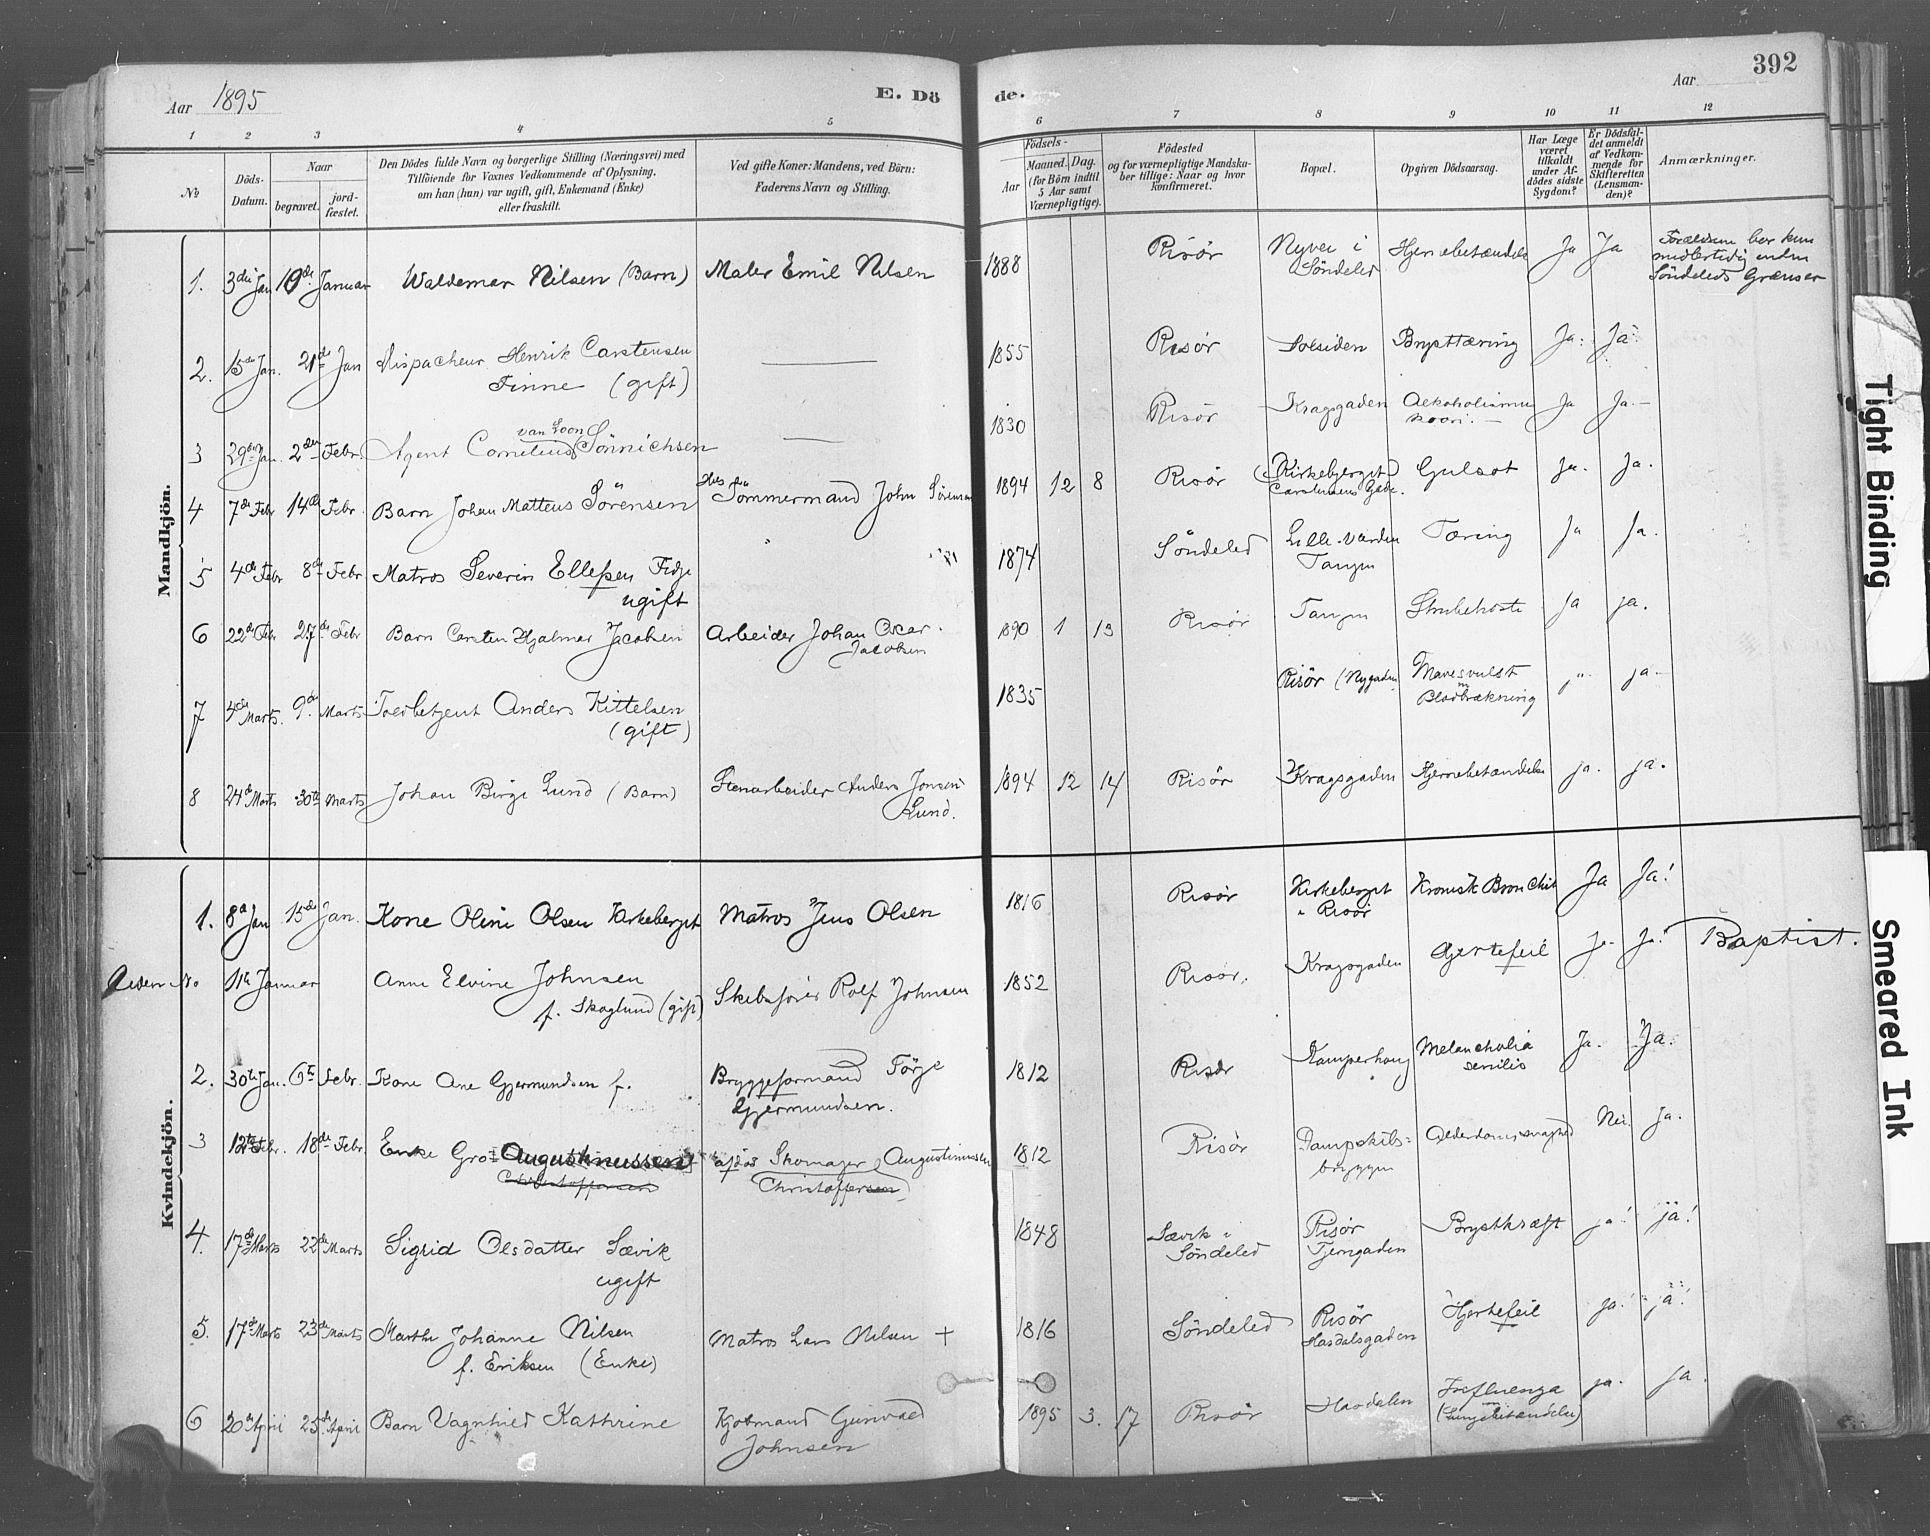 Aar 1895
E. Dö
de.
Aar
392
1 2 3 4 5 6 7 8 9 10 11 12
№
Döds-Datum.
Naar
begravet.
jord-fæstet.
Den Dödes fulde Navn og borgerlige Stilling (Næringsvei) med
Tilföiende for Voxnes Vedkommende af Oplysning,
om han (hun) var ugift, gift, Enkemand (Enke)
eller fraskilt.
Ved gifte Koner: Mandens, ved Börn:
Faderens Navn og Stilling.
Födsels-
Aar
Maaned. Dag.
(for Börn indtil
5 Aar samt
Værnepligtige).
Födested
og for værnepligtige Mandska-
ber tillige: Naar og hvor
konfirmeret.
Bopæl.
Opgiven Dödsaarsag.
Har Læge
været
tilkaldt
under Af-
dödes sidste
Sygdom?
Er Dödsfal-
det anmeldt
af Vedkom-
mende for
Skifteretten
(Lensman-
den)?
Anmærkninger.
Mandkjön.
1. 3die Jan 10de Januar Waldemar Nilsen (Barn) Maler Emil Nilsen 1888 Risör Nyvei i Hjernebetændelse Ja Ja
Söndeled
Söndeleds Grændser
2. 15de Jan. 21de Jan Dispacheur Henrik Carstensen 1855 Risör Solsiden Brysttæring Ja. Ja
Finne (gift)
3 29de Jan. 2den Febr. Agent Cornelius van Loon Sönnichsen 1830 Risör Kragsgaden Ja Ja.
4 7de Febr 14de Febr. Barn Johan Matteus Sörensen Tömmermand John Sörensen 1894 12 8 Risör Kirkebjerget Gulsot Ja. Ja.
Carstensens Gade.
5 4de Febr 8de Febr. Matros Severin Ellefsen Fidje 1874 Söndeled Lille-Varden Tæring Ja Ja.
ugift Tangen
6 22de Febr 27de Febr Barn Carsten Hjalmar Jacobsen Arbeider Johan Oscar 1890 1 13 Risör Tangen Strubehoste Ja ja.
Jacobsen
7 4de Marts. 9de Marts Toldbetjent Anders Kittelsen 1835 Risör (Nygaden Mavesvulst ja
(gift) m Blodbrækning
8 24de Marts 30te Marts Johan Birge Lund (Barn) Stenarbeider Anders Jonsen 1894 12 14 Risör Kragsgaden Hjernebetændelse ja. ja.
Lund.
Kvindekjön.
1. 8de Jan 15de Jan. Kone Oline Olsen Kirkeberget Matros Jens Olsen 1816 Risör Kirkeberget Kronisk Bronchit Ja Ja!
i Risör
Uden No 11te Januar Anne Elvine Johnsen Skibsförer Rolf Johnsen 1852 Risör. Kragsgaden Hjertefeil ja. ja! Baptist.
f. Skoglund (gift)
2. 30te Jan. 6te Febr. Kone Ane Gjermundsen f. Bryggeformand Törje 1812 Risör Kamperhaug Melancholia Ja. Ja.
Gjermundsen. senilis
3 12te Febr. 18de Febr. Enke Gro Augustinussen afdøs Skomager Augustinussen 1812 Risör Dampskibs- Alderdomssvaghed Nei. ja.
Christoffersen Christoffersen bryggen
4. 17de Marts 22de Marts Sigrid Olsdatter Sævik 1848 Sævik i Risör Brystkræft ja! ja!
ugift Söndeled Tjerngaden
5. 17de Marts 23de Marts Marthe Johanne Nilsen Matros Lars Nilsen + 1816 Söndeled Risör Hjertefeil ja! ja!
f. Eriksen (Enke) Hasdalsgaden
6 20de April 25de April Barn Vagnhild Kathrine Kjøbmand Gunvald 1895 3. 17 Risör Hasdalen Influenza ja. ja.
Johnsen (Lungebetændelse)
Tight Binding
Smeared Ink